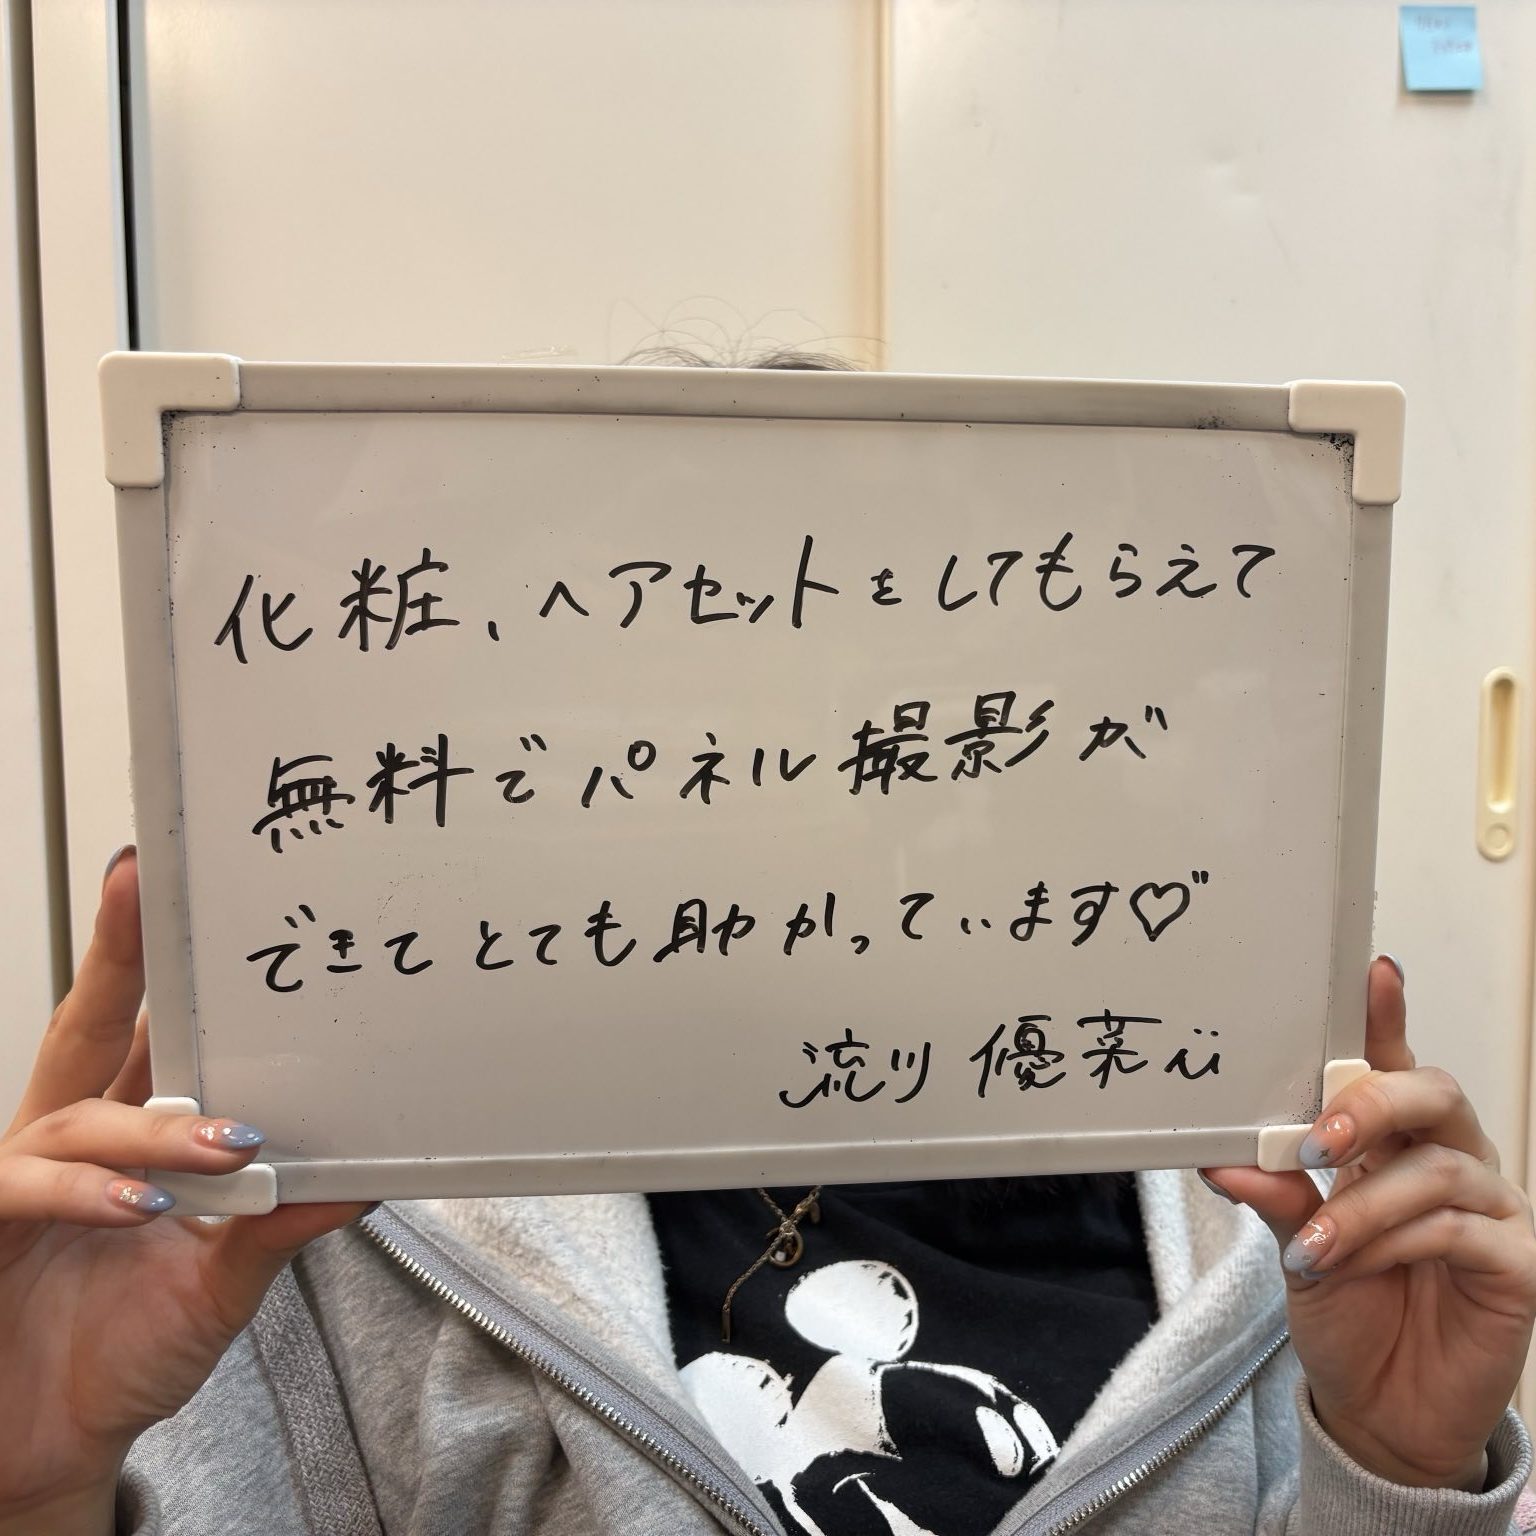 化粧、ヘアセットをしてもらえて
無料でパネル撮影が
できてとても助かっています♡"
流川 優菜